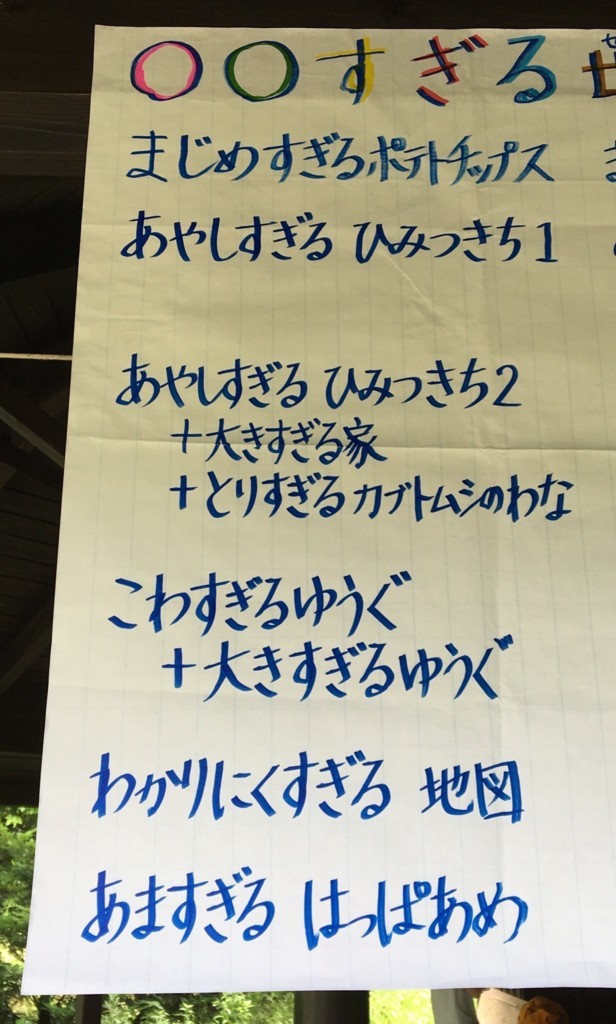 〇〇すぎる
まじめすぎるポテトチップス
あやしすぎる ひみつきち1
あやしすぎる ひみつきち2
+大きすぎる家
+とりすぎるカブトムシのわな
こわすぎるゆうぐ
+大きすぎるゆうぐ
わかりにくすぎる 地図
あますぎる はっぱあめ